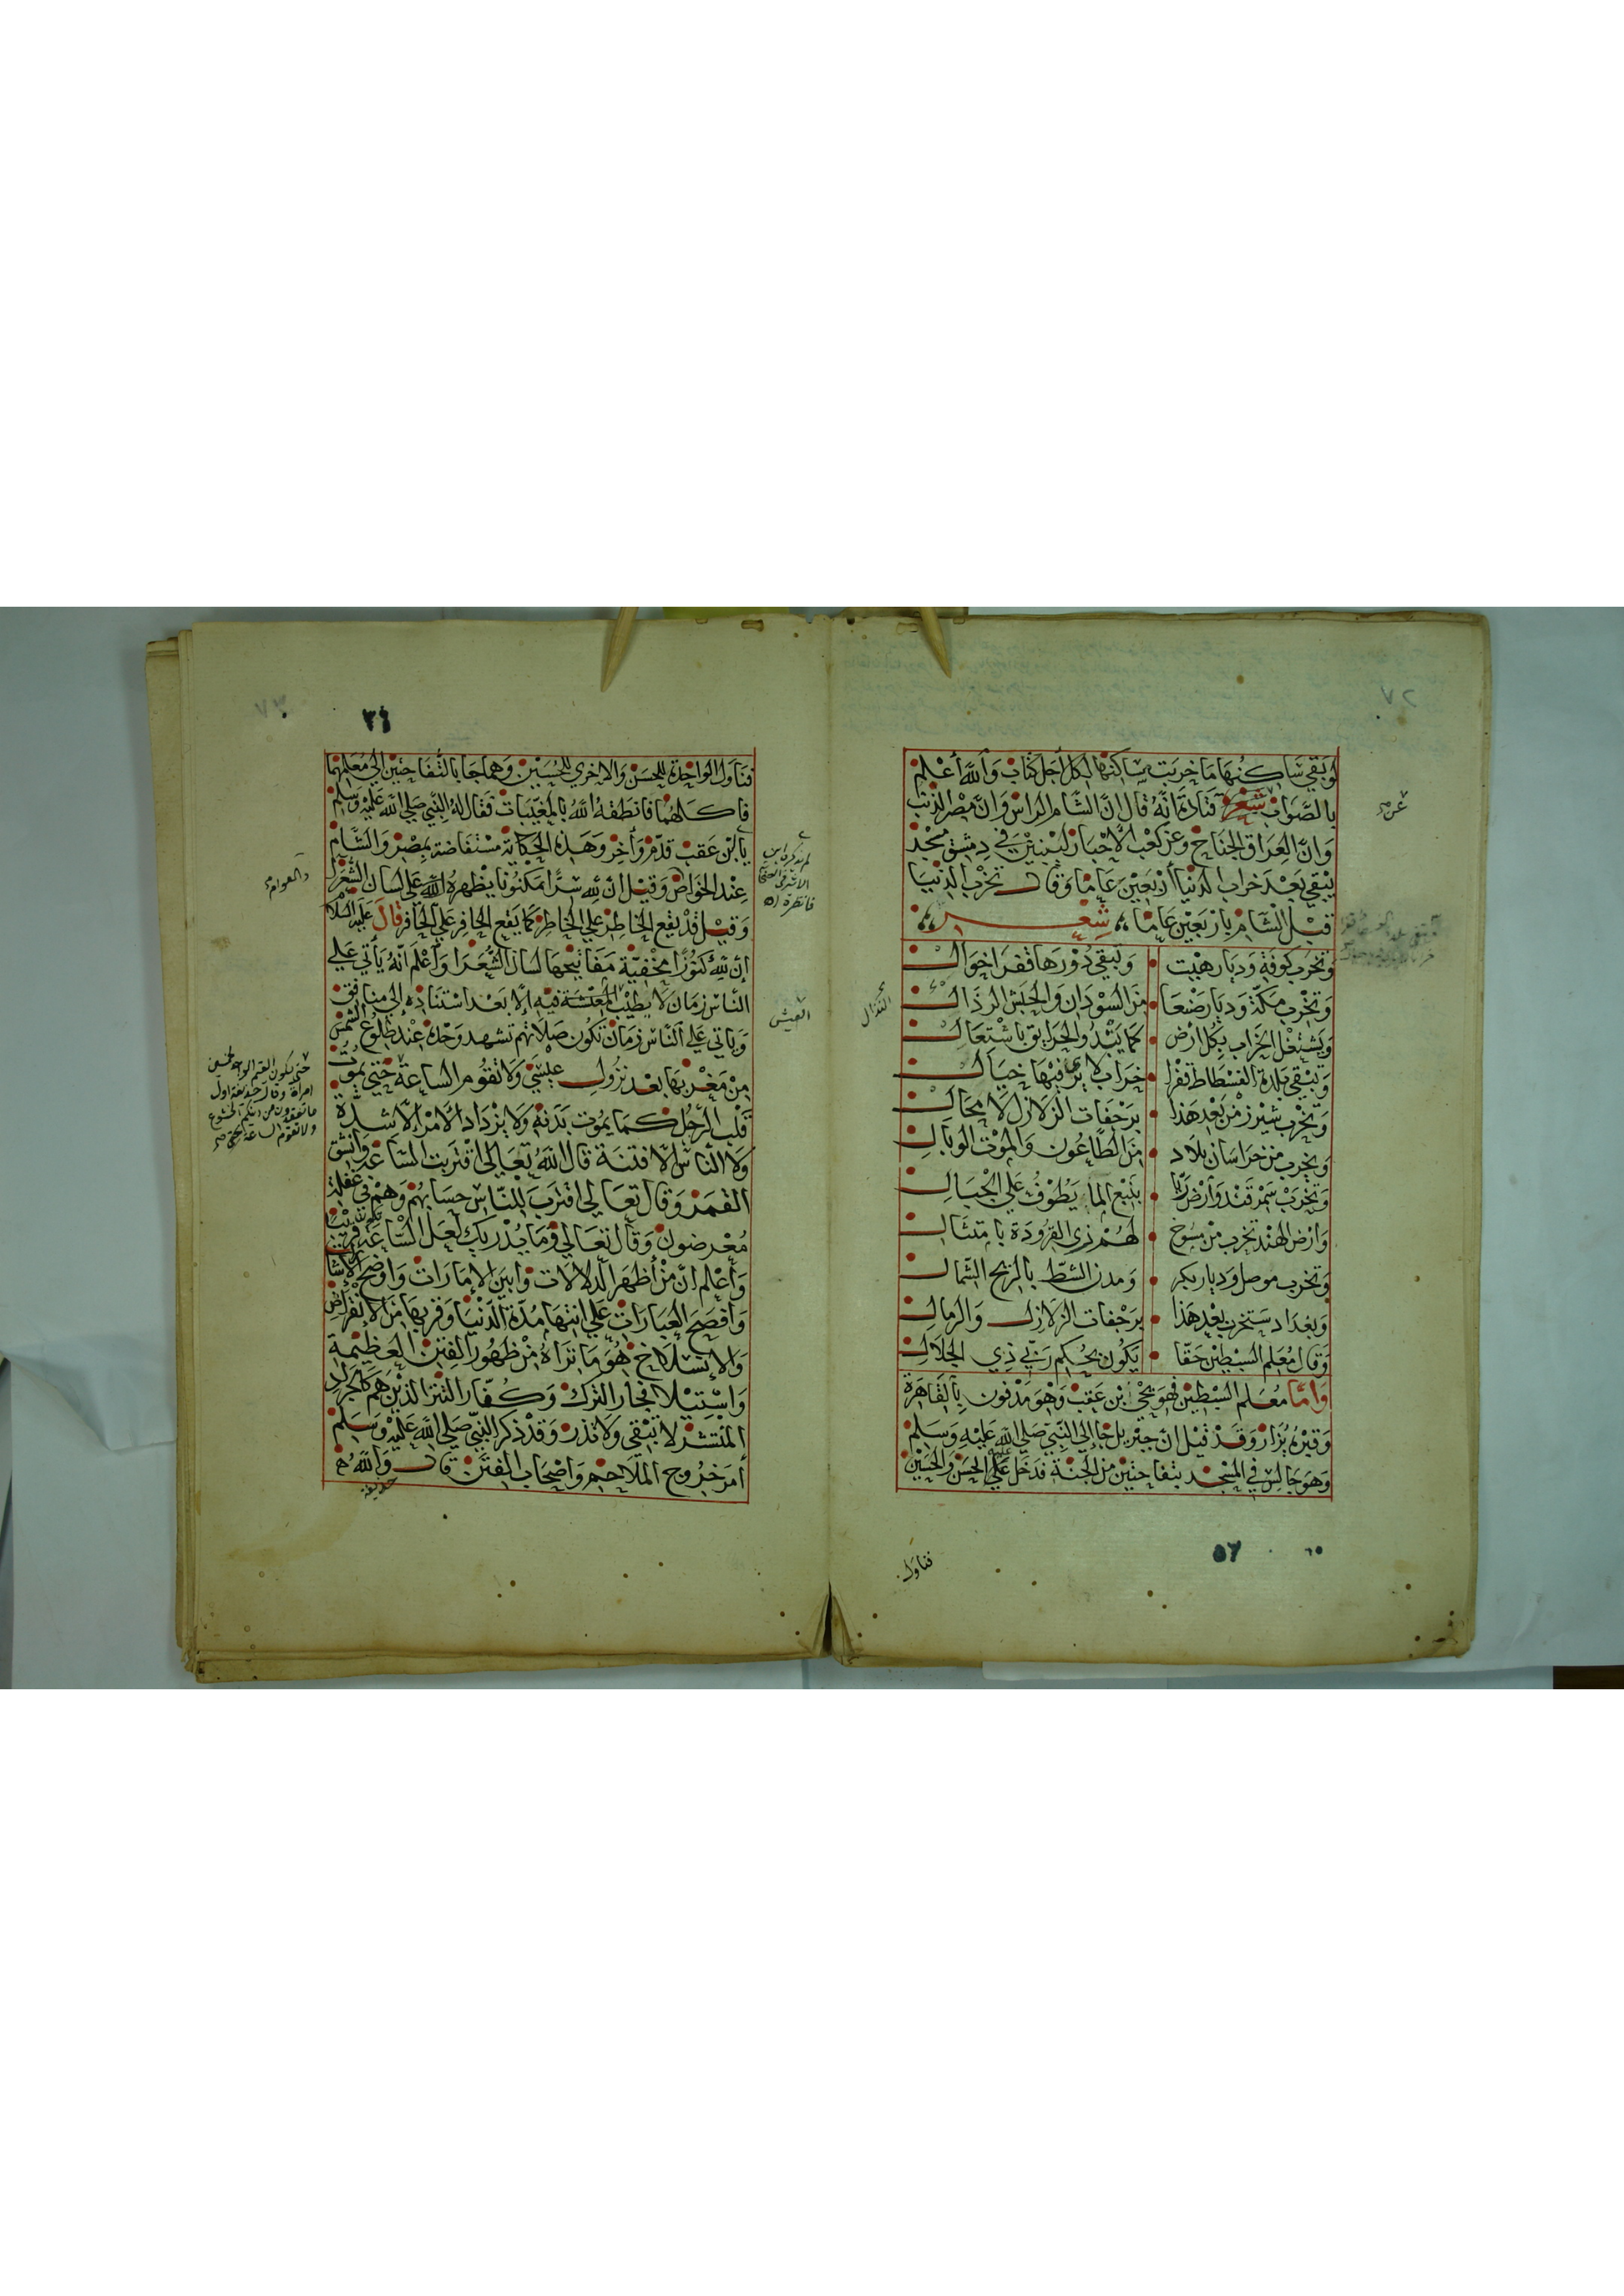 لو بقي ساكنها ما خربت مساكنها لكل أجل كتاب والله أعلم
بالصواب شعر قتادة أنه قال ان الشام الراس وان مصر الذنب
وان العراق الجناح وعن كعب الأحبار ليبنين في دمشق مسجد
يبقي بعد خراب الدنيا أربعين عاما وقال تخرب الدنيا
قبل الشام باربعين عاما شعر
وتخرب كوفة وديار هيت • وتبقي دورها قفرا خوال
وتخرب مكة وديار صنعا • من السودان والحبش الرذال
ويشتغل الخراب بكل ارض • كما يبدو الحرايق باشتعال
وتبقي بلدة الفسطاط قفرا • خراب لا يري فيها خيال
وتخرب شيرز من بعد هذا • برجفات الزلازل لا محال
ويخرب من خراسان بلاد • من الطاعون والموت الوبال
وتخرب سمرقند وارض ريا • بنبع الما يطوف علي الجبال
وارض الهند تخرب من مسوخ • لهم زي القرودة بامتثال
وتخرب موصل وديار بكر • ومدن الشط بالريح الشمال
وبغداد ستخرب بعد هذا • برجفات الزلازل والرمال
وقال معلم السبطين حقا • يكون بحكم ربي ذي الجلال
وأما معلم السبطين فهو يحي بن عقب وهو مدفون بالقاهرة
وقبره يزار وقد قيل ان جبريل جا الي النبي صلي الله عليه وسلم
وهو جالس في المسجد بتفاحتين من الجنة فدخل عليه الحسن والحسين
عن
النذال
فناول
٥٦
٦٥
٢٧
فناول الواحدة للحسن والاخري للحسين وهما جا بالتفاحتين الي معلمهما
فاكلهما فانطقه الله بالمغيبات فقال له النبي صلي الله عليه وسلم
يا ابن عقب قدم وأخر وهذه الحكاية مستفاضة بمصر والشام
عند الخواص وقيل ان لله سرا مكنونا يظهره الله علي لسان الشعرا
وقيل قد يقع الخاطر علي الخاطر كما يقع الحافر علي الحافر قال عليه السلام
إن لله كنوزا مخفية مفاتيحها لسان الشعرا وأعلم انه يأتي علي
الناس زمان لا يطيب المعيشة فيه إلا بعد استناده إلي منافق
وياتي علي الناس زمان تكون صلاتهم تشهد وحده عند طلوع الشمس
من مغربها بعد نزول عيسي ولا تقوم الساعة حتي يموت
قلب الرجل كما يموت بدنه ولا يزداد الأمر إلا شدة
ولا الناس إلا فتنة قال الله تعالي اقتربت الساعة وانشق
القمر وقال تعالي اقترب للناس حسابهم وهم في غفلة
معرضون وقال تعالي وما يدريك لعل الساعة تكون قريبا
وأعلم ان من أظهر الدلالات وأبين الإمارات وأوضح الإشارات
وأفصح العبارات علي انتها مدة الدنيا وقربها من الانقراض
والانسلاخ هو ما تراه من ظهور الفتن العظيمة
واستيلا فجار الترك وكفار التتر الذين هم كالجراد
المنتشر لا تبقي ولا تذر وقد ذكر النبي صلي الله عليه وسلم
أمر خروج الملاحم واصحاب الفتن قال والله
حذيفة
العيش
والعوام
حتي يكون القيم الواحد لخمسين
امراة وقال حذيفة اول
ما تفقدون من دينكم الخشوع
فانظره